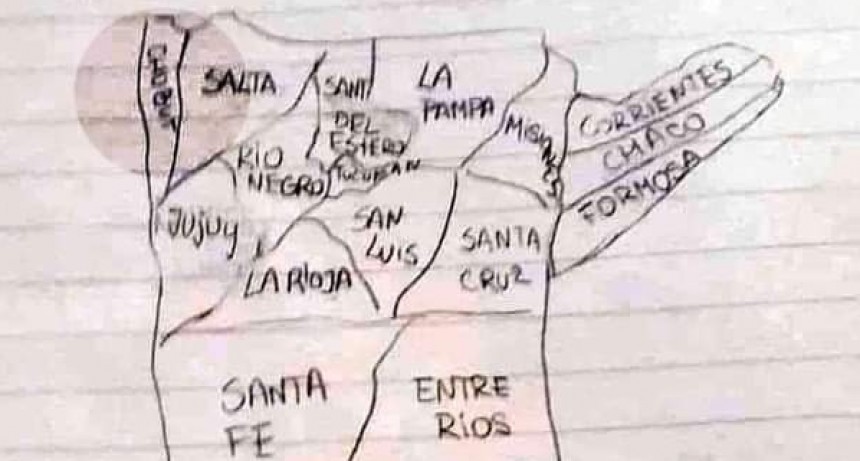 CHUBUT
SALTA
SANT
DEL
ESTERO
LA
PAMPA
MISIONES
CORRIENTES
CHACO
FORMOSA
RIO
NEGRO
TUCUMAN
JUJUY
LA RIOJA
SAN
LUIS
SANTA
CRUZ
SANTA
FE
ENTRE
RIOS